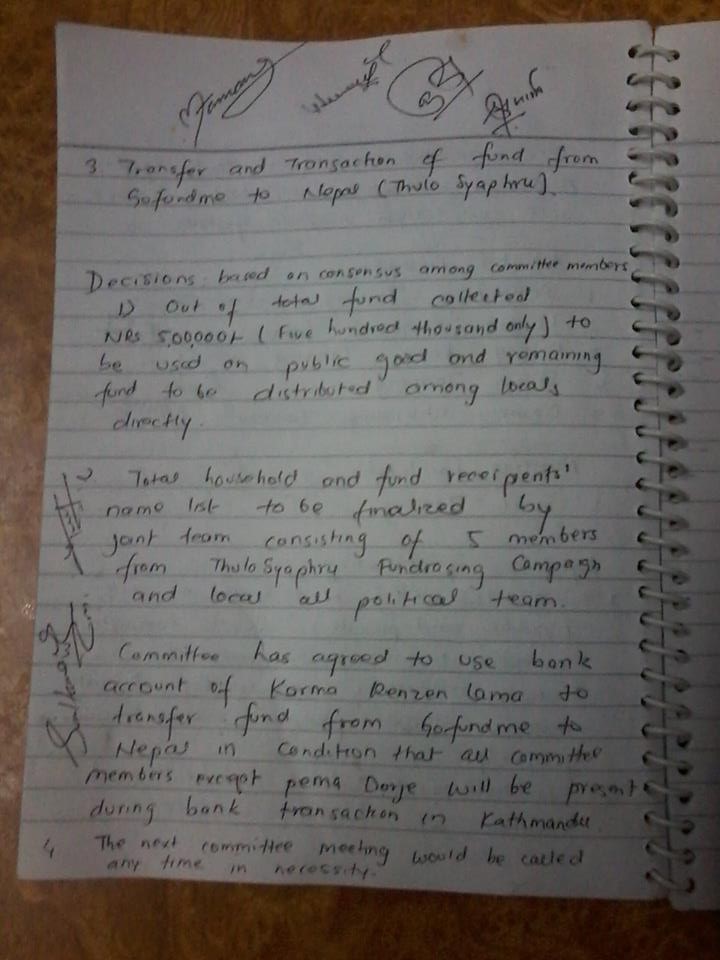 Tamang
3 Transfer and Transaction of fund from
Gofundme to Nepal (Thulo Syaphru).
Decisions based on consensus among committee members
1) Out of total fund collected
NRS 5,00,000/- (Five hundred thousand only) to
be used on public good and remaining
fund to be distributed among locals
directly.
2) Total household and fund receipents'
name list to be finalized by
joint team consisting of 5 members
from Thulo Syaphru Fundrasing Campagn
and local all political team.
Committee has agreed to use bank
account of Karma Renzen Lama to
transfer fund from Gofundme to
Nepal in condition that all committee
members except pema Dorje will be present
during bank transaction in Kathmandu
4 The next committee meeting would be called
any time in necessity.